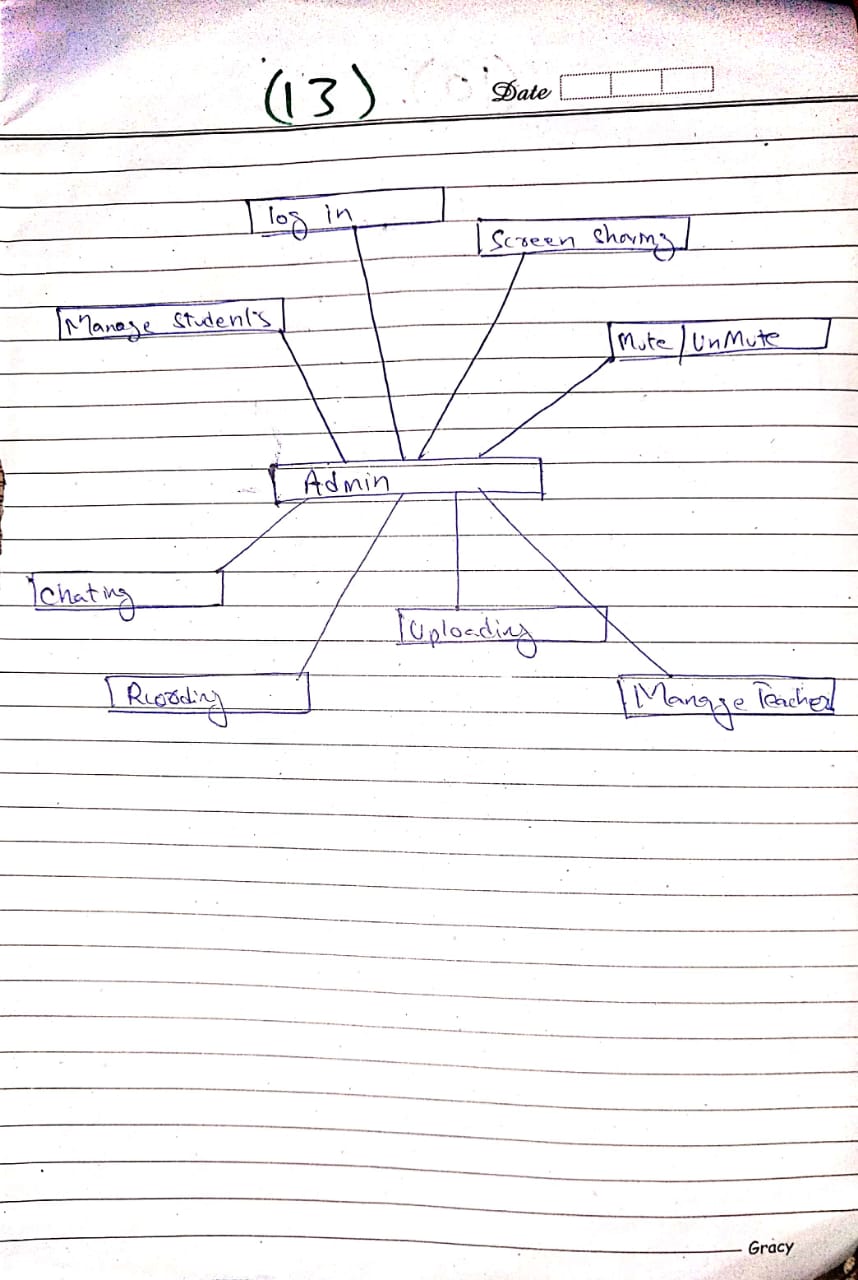 (13)
Date
log in
Screen Sharing
Manage Students
Mute / UnMute
Admin
Chating
Uploading
Rcording
Manage Teacher
Gracy